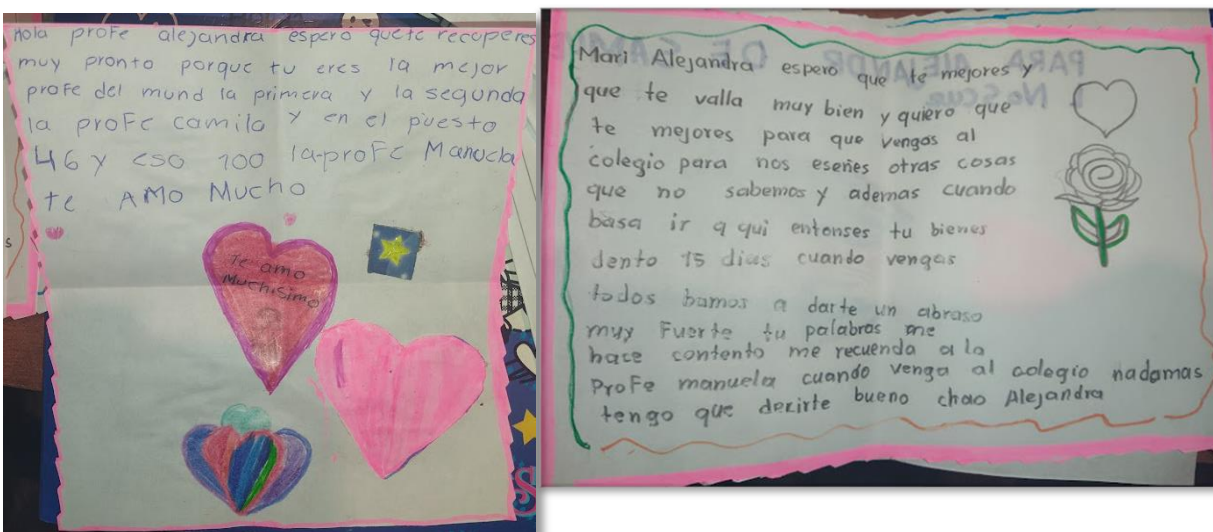 Hola profe alejandra espero que te recuperes
muy pronto porque tu eres la mejor
profe del mund la primera y la segunda
la profe camila y en el puesto
46 y eso 100 la profe Manuela
te AMO MUCHO
Te amo
Muchisimo
Mari Alejandra espero que te mejores y
que te valla muy bien y quiero que
te mejores para que vengas al
colegio para nos eseñes otras cosas
que no sabemos y ademas cuando
basa ir a qui entonses tu bienes
dento 15 dias cuando vengas
todos bamos a darte un abraso
muy Fuerte tu palabras me
hace contento me recuenda a la
Profe manuela cuando venga al colegio nadamas
tengo que dezirte bueno chao Alejandra